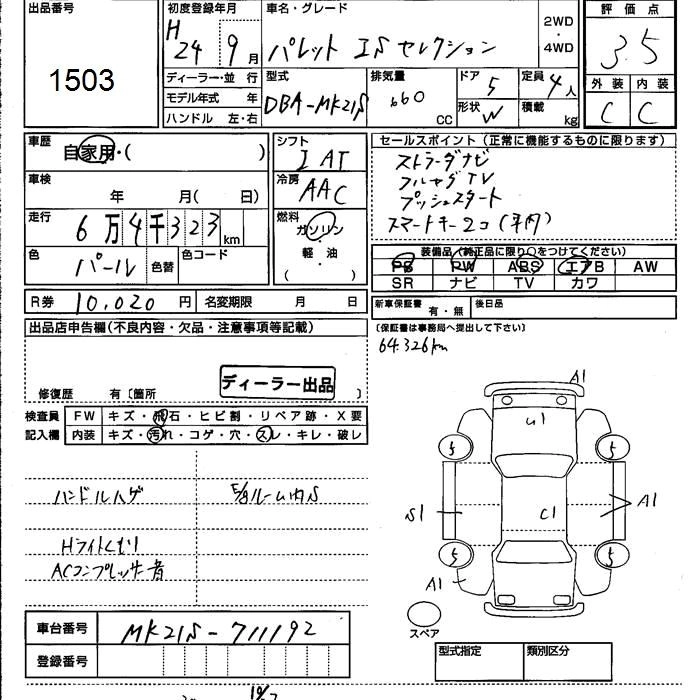 出品番号
1503
初度登録年月
H 24 9月
車名・グレード
パレット ISセレクション
2WD・4WD
評価点
3.5
外装 内装
C C
ディーラー・並行
モデル年式 年
ハンドル 左・右
型式
DBA-MK21S
排気量
660 CC
ドア 5
形状 W
定員 4人
積載 kg
車歴
自家用・( )
車検
年 月( 日)
走行
6万4千323km
色
パール
色替
色コード
シフト
IAT
冷房
AAC
燃料
ガソリン・軽油
( )
セールスポイント(正常に機能するものに限ります)
ストラーダナビ
フルセグTV
プッシュスタート
スマートキー2コ(車内)
装備品(純正品に限り○をつけてください)
PS PW ABS エアB AW
SR ナビ TV カワ
R券 10,020円 名変期限 月 日
新車保証書 有・無 後日品
(保証書は事務局へ提出して下さい)
64.326km
出品店申告欄(不良内容・欠品・注意事項等記載)
ディーラー出品
修復歴 有〔箇所 〕
検査員 FW キズ・飛石・ヒビ割・リペア跡・X要
記入欄 内装 キズ・汚れ・コゲ・穴・スレ・キレ・破レ
ハンドルハゲ
Hライトくもり
ACコンプレッサー音
A1
U1
5 5
S1 C1 A1
5 5
A1
スペア
車台番号 MK21S-711192
登録番号
型式指定 類別区分